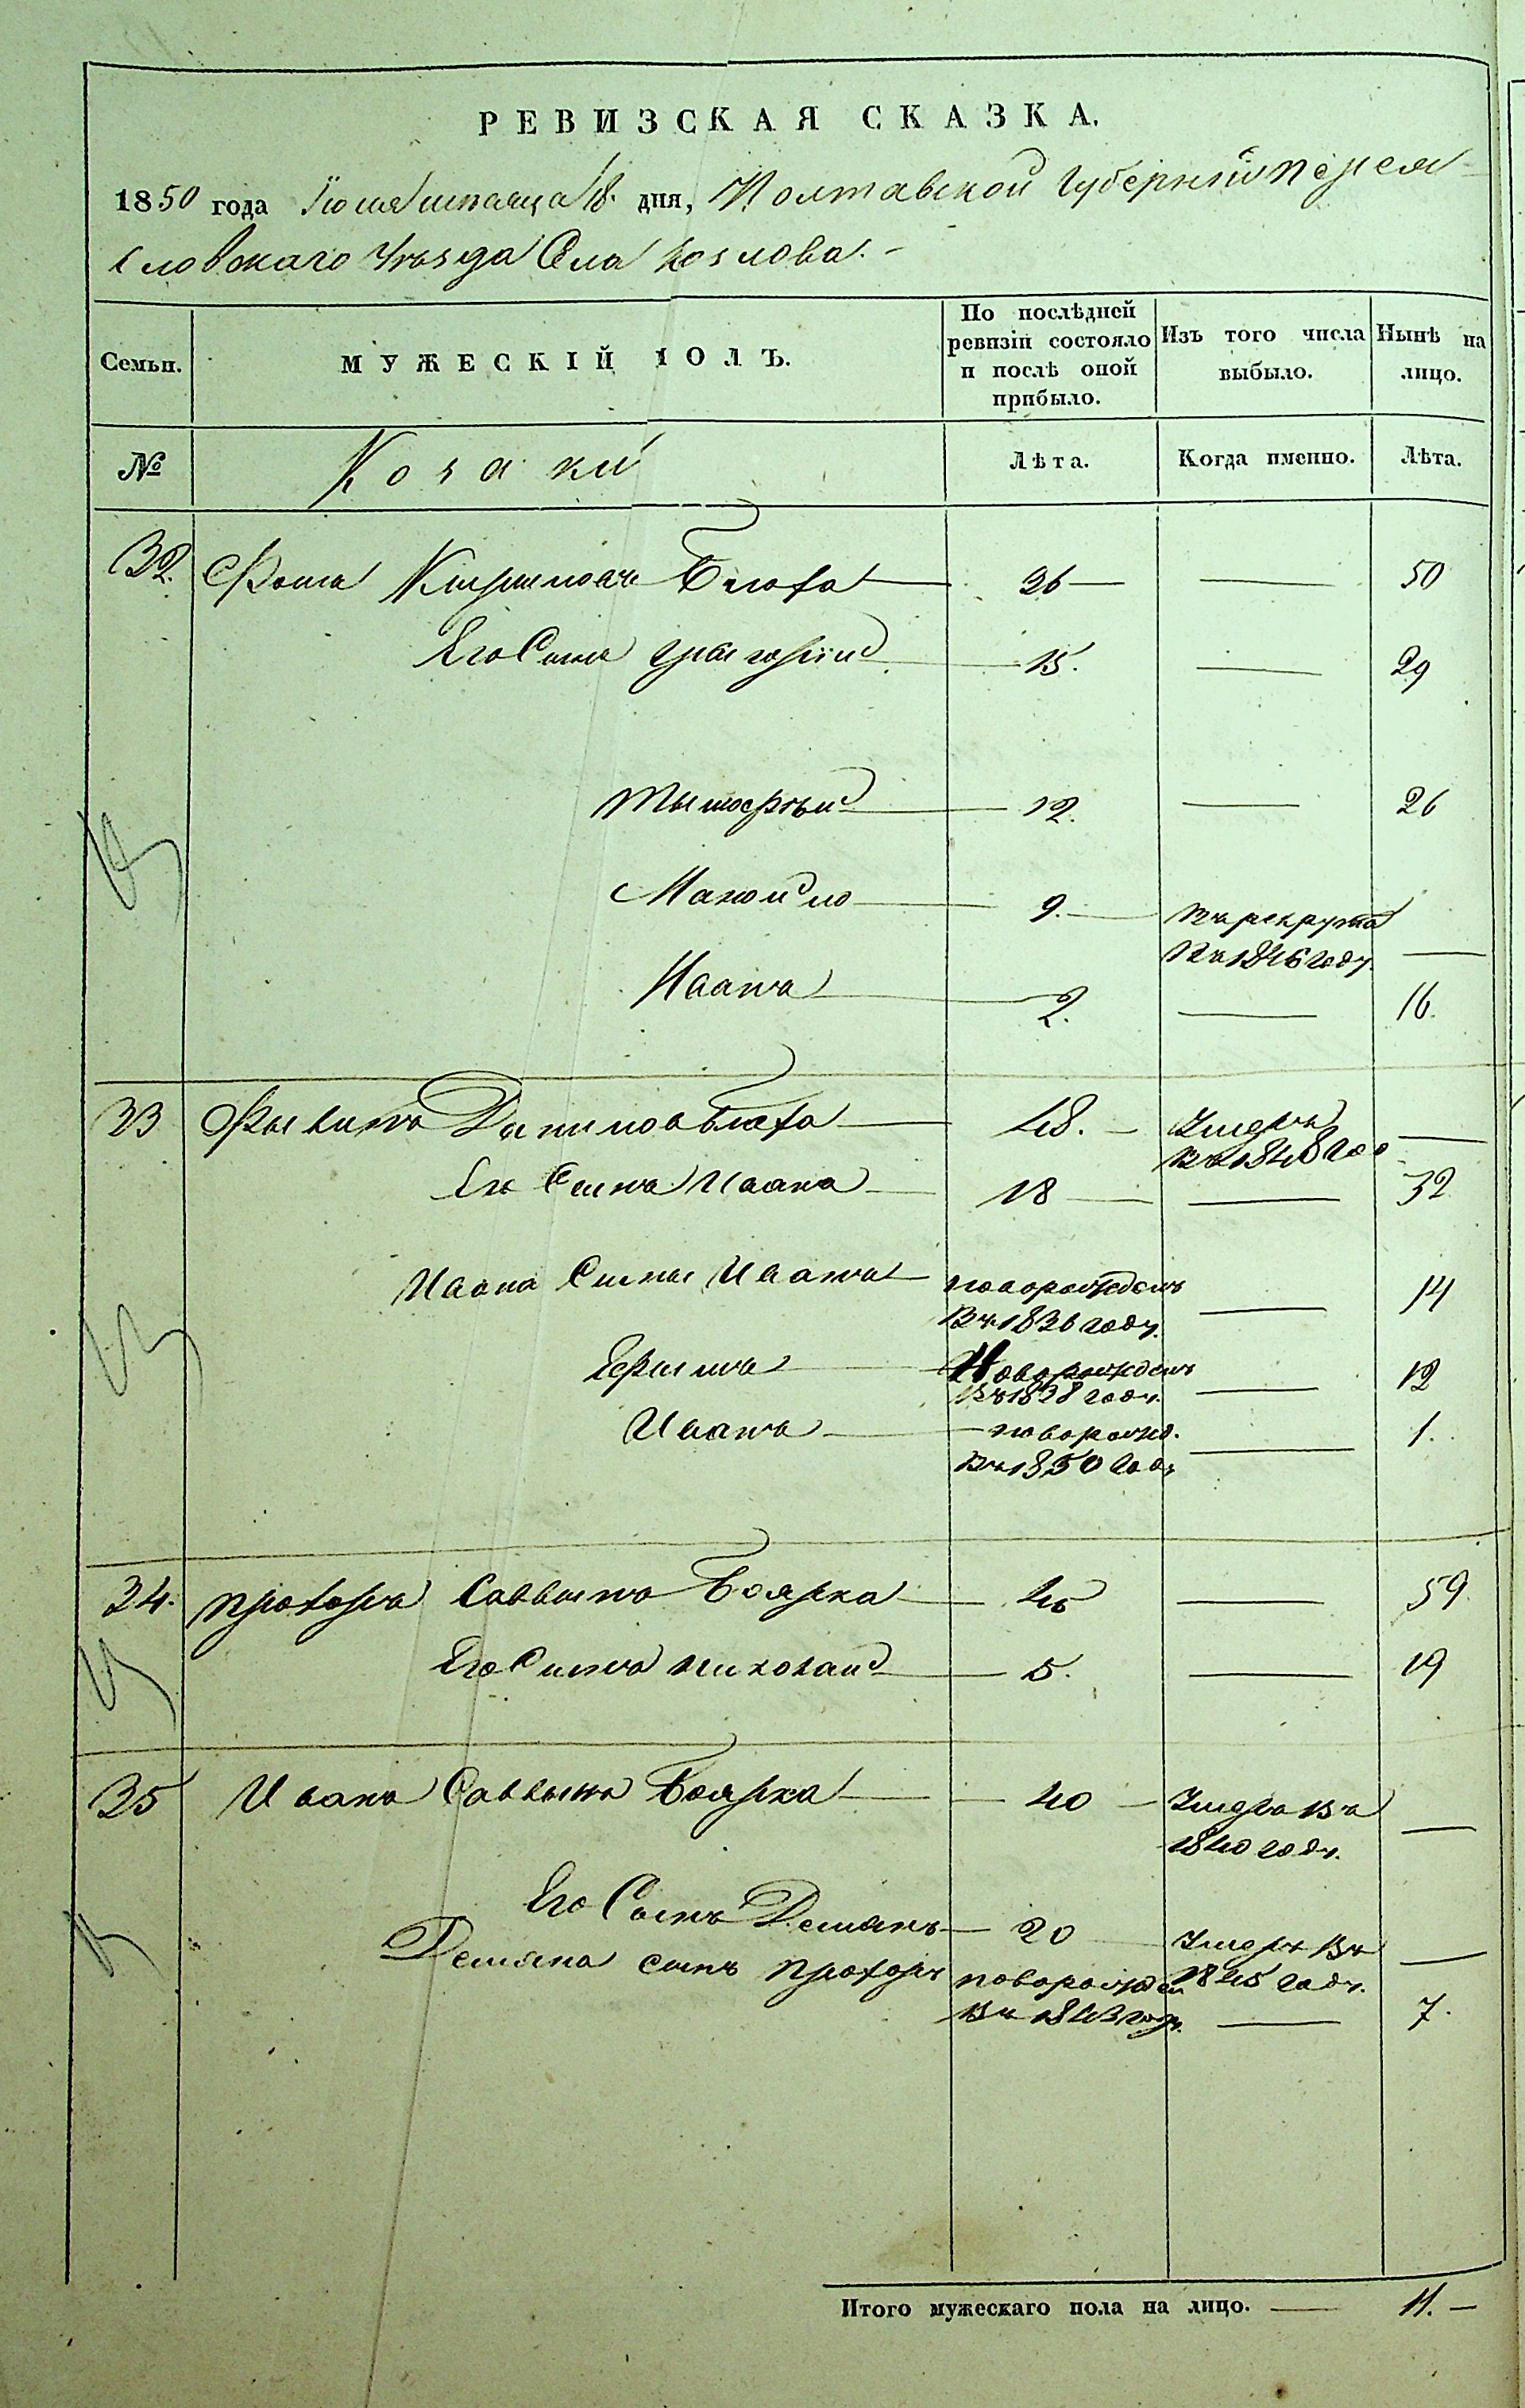 РЕВИЗСКАЯ СКАЗКА.
1850 года Іюля месяца 18. дня, Полтавской Губерніи Перея-
словскаго Уѣзда Села Козлова. -
Семьи. МУЖЕСКІЙ ПОЛЪ. По послѣдней ревизіи состояло и послѣ оной прибыло. Изъ того числа выбыло. Нынѣ на лицо.
№ Козаки Лѣта. Когда именно. Лѣта.
32. Фома Кириловъ Блоха 36 — — 50
Его Сыны Григорій 15. — 29
Тимофѣй 12. — 26
Маноило 9. — въ рекруты
въ 1846 году. —
Иванъ 2. — 16.
33 Филипъ Даниловъ Блоха 48. — Умеръ
въ 1848 год —
Его Сынъ Иванъ 18 — — 32
Ивана Сыны Иванъ новорожденъ
въ 1836 году. — 14
Ефимъ Новорожденъ
въ 1838 году. — 12
Иванъ — новорожд.
въ 1850 году — 1.
34. Прохоръ Саввинъ Боярка 45 — 59
Его Сынъ Николай 5. — 19
35 Иванъ Саввинъ Боярка 40 — Умеръ въ
1840 году. —
Его Сынъ Демянъ 20 Умеръ въ
1845 году. —
Демяна сынъ Прохоръ новорожден
въ 1843 году. — 7.
Итого мужескаго пола на лицо. — 11. —